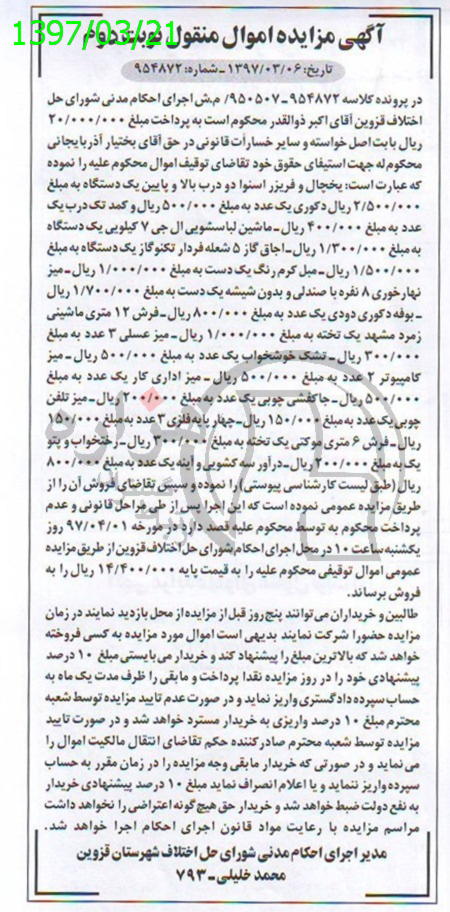 1397/03/21
آگهی مزایده اموال منقول نوبت دوم
تاریخ: ۱۳۹۷/۰۳/۰۶ـ شماره: ۹۵۴۸۷۲
در پرونده کلاسه ۹۵۴۸۷۲ ـ ۹۵۰۵۰۷/ م.ش اجرای احکام مدنی شورای حل
اختلاف قزوین آقای اکبر ذوالقدر محکوم است به پرداخت مبلغ ۲۰/۰۰۰/۰۰۰
ریال بابت اصل خواسته و سایر خسارآت قانونی در حق آقای بختیار آذربایجانی
محکوم له جهت استیفای حقوق خود تقاضای توقیف اموال محکوم علیه را نموده
که عبارت است: یخچال و فریزر اسنوا دو درب بالا و پایین یک دستگاه به مبلغ
۲/۵۰۰/۰۰۰ ریال دکوری یک عدد به مبلغ ۵۰۰/۰۰۰ ریال و کمد تک درب یک
عدد به مبلغ ۴۰۰/۰۰۰ ریال ـ ماشین لباسشویی ال جی ۷ کیلویی یک دستگاه
به مبلغ ۱/۳۰۰/۰۰۰ ریال ـ اجاق گاز ۵ شعله فردار تکنوگاز یک دستگاه به مبلغ
۱/۵۰۰/۰۰۰ ریال ـ مبل کرم رنگ یک دست به مبلغ ۱/۰۰۰/۰۰۰ ریال ـ میز
نهارخوری ۸ نفره با صندلی و بدون شیشه یک دست به مبلغ ۱/۷۰۰/۰۰۰ ریال
ـ بوفه دکوری دودی یک عدد به مبلغ ۸۰۰/۰۰۰ ریال ـ فرش ۱۲ متری ماشینی
زمرد مشهد یک تخته به مبلغ ۱/۰۰۰/۰۰۰ ریال ـ میز عسلی ۳ عدد به مبلغ
۳۰۰/۰۰۰ ریال ـ تشک خوشخواب یک عدد به مبلغ ۵۰۰/۰۰۰ ریال ـ میز
کامپیوتر ۲ عدد به مبلغ ۵۰۰/۰۰۰ ریال ـ میز اداری کار یک عدد به مبلغ
۵۰۰/۰۰۰ ریال ـ جاکفشی چوبی یک عدد به مبلغ ۲۰۰/۰۰۰ ریال ـ میز تلفن
چوبی یک عدد به مبلغ ۱۵۰/۰۰۰ ریال ـ چهار پایه فلزی ۳ عدد به مبلغ ۱۵۰/۰۰۰
ریال ـ فرش ۶ متری موکتی یک تخته به مبلغ ۳۰۰/۰۰۰ ریال ـ رختخواب و پتو
یک به مبلغ ۲۰۰/۰۰۰ ریال ـ درآور سه کشویی و آینه یک عدد به مبلغ ۸۰۰/۰۰۰
ریال (طبق لیست کارشناسی پیوستی) را نموده و سپس تقاضای فروش آن را از
طریق مزایده عمومی نموده است که این اجرا پس از طی مراحل قانونی و عدم
پرداخت محکوم به توسط محکوم علیه قصد دارد در مورخه ۹۷/۰۴/۰۱ روز
یکشنبه ساعت ۱۰ در محل اجرای احکام شورای حل اختلاف قزوین از طریق مزایده
عمومی اموال توقیفی محکوم علیه را به قیمت پایه ۱۴/۴۰۰/۰۰۰ ریال را به
فروش برساند.
طالبین و خریداران می‌توانند پنج روز قبل از مزایده از محل بازدید نمایند در زمان
مزایده حضورا شرکت نمایند بدیهی است اموال مورد مزایده به کسی فروخته
خواهد شد که بالاترین مبلغ را پیشنهاد کند و خریدار می‌بایستی مبلغ ۱۰ درصد
پیشنهادی خود را در روز مزایده نقدا پرداخت و مابقی را ظرف مدت یک ماه به
حساب سپرده دادگستری واریز نماید و در صورت عدم تایید مزایده توسط شعبه
محترم مبلغ ۱۰ درصد واریزی به خریدار مسترد خواهد شد و در صورت تایید
مزایده توسط شعبه محترم صادر کننده حکم تقاضای انتقال مالکیت اموال را
می نماید و در صورتی که خریدار مابقی وجه مزایده را در زمان مقرر به حساب
سپرده واریز ننماید و یا اعلام انصراف نماید مبلغ ۱۰ درصد پیشنهادی خریدار
به نفع دولت ضبط خواهد شد و خریدار حق هیچ گونه اعتراضی را نخواهد داشت
مراسم مزایده با رعایت مواد قانون اجرای احکام اجرا خواهد شد.
مدیر اجرای احکام مدنی شورای حل اختلاف شهرستان قزوین
محمد خلیلی ـ ۷۹۳